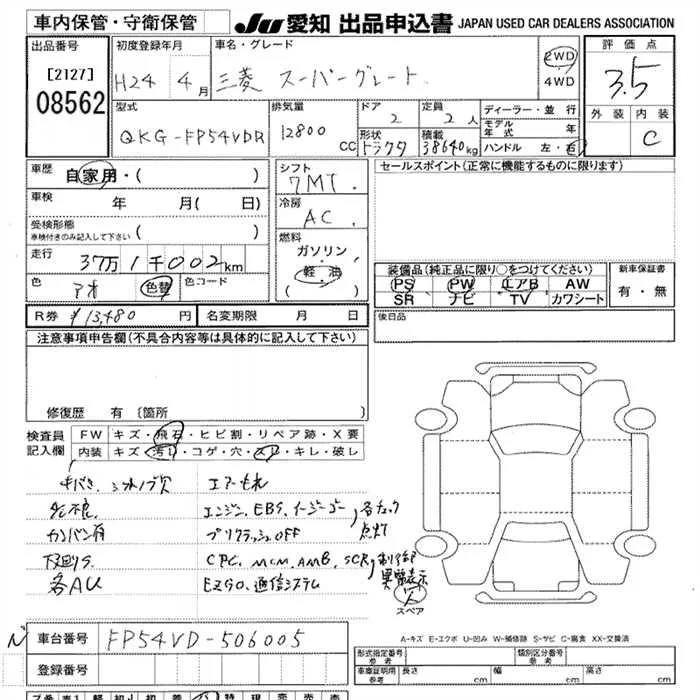 車内保管・守衛保管 JU 愛知 出品申込書 JAPAN USED CAR DEALERS ASSOCIATION
出品番号 初度登録年月 車名・グレード 評価点
[2127] H24 4月 三菱 スーパーグレート 2WD 3.5
08562 4WD
外装 内装
型式 排気量 ドア 定員 ディーラー・並行
QKG-FP54VDR 12800CC 2 2人 モデル年式 年 C
形状 積載 ハンドル 左・右
トラクタ 38640kg
車歴 自家用・( ) シフト セールスポイント(正常に機能するものに限ります)
7MT
車検 年 月( 日) 冷房
AC
受検形態
車検付きのみ記入して下さい ( ) 燃料
ガソリン
走行 37万1千002km 軽油
( )
装備品(純正品に限り○をつけてください) 新車保証書
色 アオ 色替 色コード PS PW エアB AW 有・無
SR ナビ TV カワシート
R券 ¥13,480円 名変期限 月 日 後日品
注意事項申告欄(不具合内容等は具体的に記入して下さい)
修復歴 有 〔箇所 〕
検査員 FW キズ・飛石・ヒビ割・リペア跡・X要
記入欄 内装 キズ・汚れ・コゲ・穴・スレ・キレ・破レ
エアーもれ
エンジン、EBS、イージーゴー、各チェック
点灯
カンバン有 プリクラッシュOFF
CPC、MCM、AMB、SCR、制御
異常表示
各AU EZGO、通信システム
スペア
A-キズ E-エクボ U-凹み W-補修跡 S-サビ C-腐食 XX-交換済
N 車台番号 FP54VD-506005
登録番号
形式指定番号 参考 類別区分番号 参考
車庫証明用 参考 長さ cm 幅 cm 高さ cm